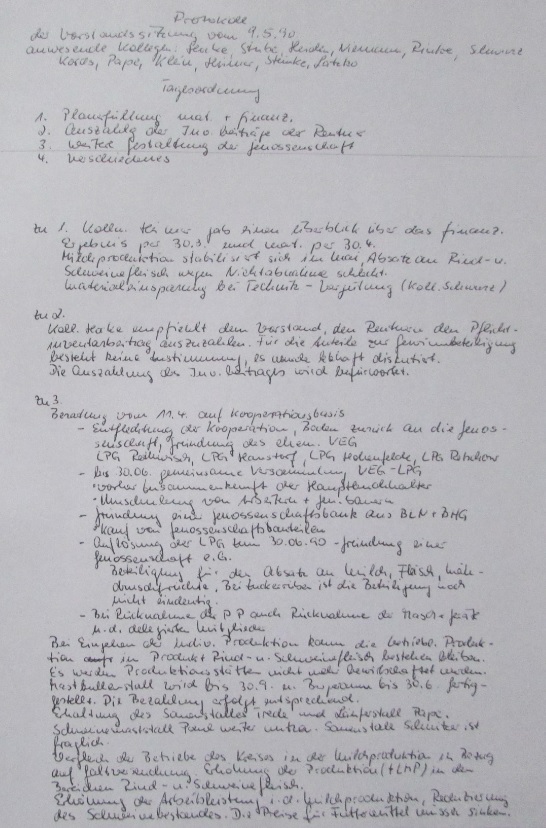 Protokoll
der Vorstandssitzung vom 9.5.90
anwesende Kollegen: Stube, Herden, Niemann, Schwarz
Koros, Pape, Klein, Steinke, Latzko
Tagesordnung
1. Planerfüllung mat. + finanz.
2. Auszahlg der Inv. beiträge der Rentner
3. weitere Gestaltung der Genossenschaft
4. Verschiedenes
zu 1. Kolln. gab einen Überblick über das finanz.
Ergebnis per 30.3. und mat. per 30.4.
Milchproduktion stabilisiert sich im Mai, Absatz an Rind- u.
Schweinefleisch wegen Nichtabnahme schlecht.
Materialeinsparung bei Technik - Vergütung (Koll. Schwarz)
zu 2.
Koll. empfiehlt dem Vorstand, den Rentnern den Pflicht-
inventarbeitrag auszuzahlen. Für die Anteile zur Gewinnbeteiligung
besteht keine Zustimmung, es wurde lebhaft diskutiert.
Die Auszahlung des Inv. beitrages wird befürwortet.
zu 3.
Beratung vom 11.4. auf Kooperationsbasis
- Entflechtung der Kooperation, Boden zurück an die Genos-
senschaft, Gründung des ehem. VEG
LPG LPG Hanstorf, LPG Hohenfelde, LPG Retschow
- bis 30.06. gemeinsame Versammlung VEG-LPG
vorher Zusammenkunft der Hauptbuchhalter
- Umschulung von Arbeitern + Gen. bauern
- Gründung einer Genossenschaftsbank aus BLN + BHG
Kauf von Genossenschaftsanteilen
- Auflösung der LPG zum 30.06.90 - Gründung einer
Genossenschaft e.G.
Beteiligung für den Absatz an Milch, Fleisch, Mäh-
druschfrüchte, Bei Zuckerrüben ist die Beteiligung noch
nicht eindeutig.
- Bei Rücknahme der PP auch Rücknahme der Masch. + Geräte
u. d. delegierten Mitglieder
Bei Eingehen der indiv. Produktion kann die betriebl. Produk-
tion in Produkt Rind- u. Schweinefleisch bestehen bleiben.
Es werden Produktionsstätten nicht mehr bewirtschaftet werden.
Mastbullenstall wird bis 30.9. u. bis 30.6. fertig-
gestellt. Die Bezahlung erfolgt entsprechend.
Erhaltung des Sauenstalles und Läuferstall Pape.
Schweinemaststall weiter nutzen. Sauenstall ist
fraglich.
Vergleich der Betriebe des Kreises in der Milchproduktion in Bezug
auf Erhöhung der Produktion in den
Bereichen Rind- u. Schweinefleisch.
Erhöhung der Arbeitsleistung i. d. Milchproduktion, Reduzierung
des Schweinebestandes. Die Preise für Futtermittel müssen sinken.